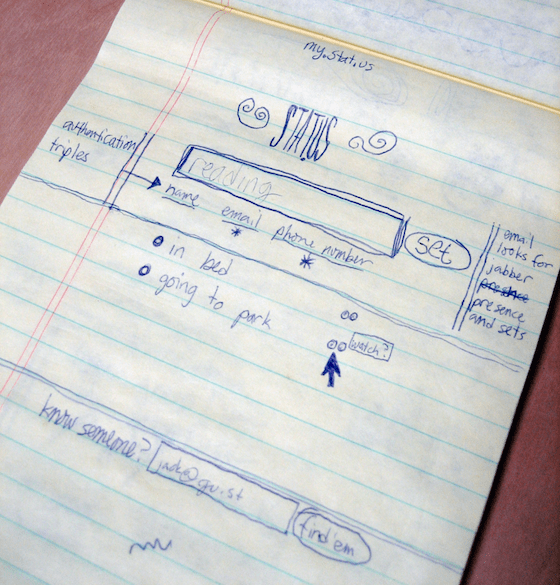 my.stat.us
STATUS
authentication
triples
reading
name email phone number
* *
set
in bed
going to park
watch?
email
looks for
jabber
presence
and sets
know someone?
jack@gu.st
find em